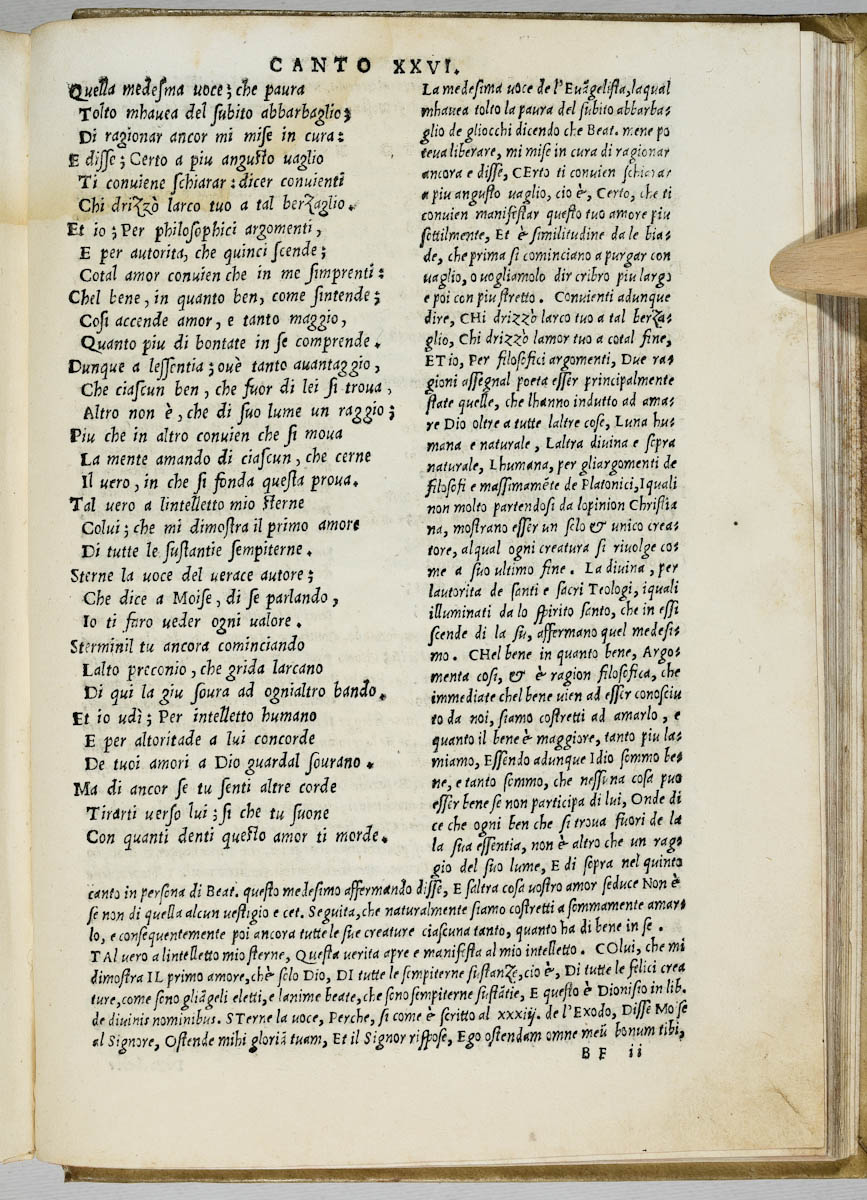 CANTO XXVI.
Quella medesma uoce; che paura
Tolto mhauea del subito abbarbaglio;
Di ragionar ancor mi mise in cura:
E disse; Certo a piu angusto uaglio
Ti conuiene schiarar: dicer conuienti
Chi drizzò larco tuo a tal berzaglio.
Et io; Per philosophici argomenti,
E per autorita, che quinci scende;
Cotal amor conuien che in me simprenti:
Chel bene, in quanto ben, come sintende;
Cosi accende amor, e tanto maggio,
Quanto piu di bontate in se comprende.
Dunque a lessentia; ouè tanto auantaggio,
Che ciascun ben, che fuor di lei si troua,
Altro non è, che di suo lume un raggio;
Piu che in altro conuien che si moua
La mente amando di ciascun, che cerne
Il uero, in che si fonda questa proua.
Tal uero a lintelletto mio sterne
Colui; che mi dimostra il primo amore
Di tutte le sustantie sempiterne.
Sterne la uoce del uerace autore;
Che dice a Moise, di se parlando,
Io ti faro ueder ogni ualore.
Sterminil tu ancora cominciando
Lalto preconio, che grida larcano
Di qui la giu soura ad ognialtro bando.
Et io udì; Per intelletto humano
E per altoritade a lui concorde
De tuoi amori a Dio guardal sourano.
Ma di ancor se tu senti altre corde
Tirarti uerso lui; si che tu suone
Con quanti denti questo amor ti morde.
La medesima uoce de l'Euãgelista, laqual
mhauea tolto la paura del subito abbarba=
glio de gliocchi dicendo che Beat. mene po
teua liberare, mi mise in cura di ragionar
ancora e disse, CErto ti conuien schiarar
a piu angusto uaglio, cio è, Certo, che ti
conuien manifestar questo tuo amore piu
sottilmente, Et è similitudine da le bia=
de, che prima si cominciano a purgar con
uaglio, o uogliamolo dir cribro piu largo
e poi con piu stretto. Conuienti adunque
dire, CHi drizzò larco tuo a tal berza=
glio, Chi drizzò lamor tuo a cotal fine,
ET io, Per filosofici argomenti, Due ra=
gioni assegnal poeta esser principalmente
state quelle, che lhanno indutto ad ama=
re Dio oltre a tutte laltre cose, Luna hu=
mana e naturale, Laltra diuina e sopra
naturale, Lhumana, per gliargomenti de
filosofi e massimamẽte de Platonici, I quali
non molto partendosi da lopinion Christia
na, mostrano esser un solo & unico crea=
tore, alqual ogni creatura si riuolge co=
me a suo ultimo fine. La diuina, per
lautorita de santi e sacri Teologi, iquali
illuminati da lo spirito santo, che in essi
scende di la su, affermano quel medesi=
mo. CHel bene in quanto bene, Argo=
menta cosi, & è ragion filosofica, che
immediate chel bene uien ad esser conosciu
to da noi, siamo costretti ad amarlo, e
quanto il bene è maggiore, tanto piu la=
miamo, Essendo adunque Idio sommo be=
ne, e tanto sommo, che nessuna cosa puo
esser bene se non participa di lui, Onde di
ce che ogni ben che si troua fuori de la
la sua essentia, non è altro che un rag=
gio del suo lume, E di sopra nel quinto
canto in persona di Beat. questo medesimo affermando disse, E saltra cosa uostro amor seduce Non è
se non di quella alcun uestigio e cet. Seguita, che naturalmente siamo costretti a sommamente amar=
lo, e consequentemente poi ancora tutte le sue creature ciascuna tanto, quanto ha di bene in se.
TAl uero a lintelletto mio sterne, Questa uerita apre e manifesta al mio intelletto. COlui, che mi
dimostra IL primo amore, chè solo Dio, DI tutte le sempiterne sustanze, cio è, Di tutte le felici crea
ture, come sono gliãgeli eletti, e lanime beate, che sono sempiterne sustãtie, E questo è Dionisio in lib.
de diuinis nominibus. STerne la uoce, Perche, si come è scritto al xxxiij. de l'Exodo, Disse Moise
al Signore, Ostende mihi gloriã tuam, Et il Signor rispose, Ego ostendam omne meũ bonum tibi,
BF ii